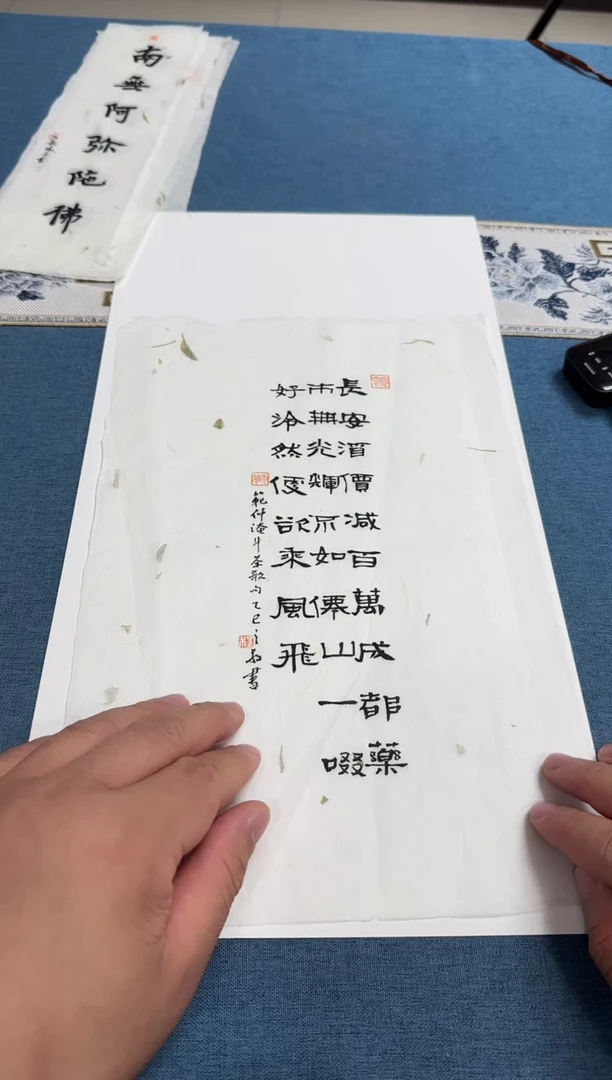 長安酒價減百萬成都藥
市無光輝不如僊山一啜
好泠然便欲乘風飛
範仲淹斗茶歌句乙巳書
南無阿弥陀佛